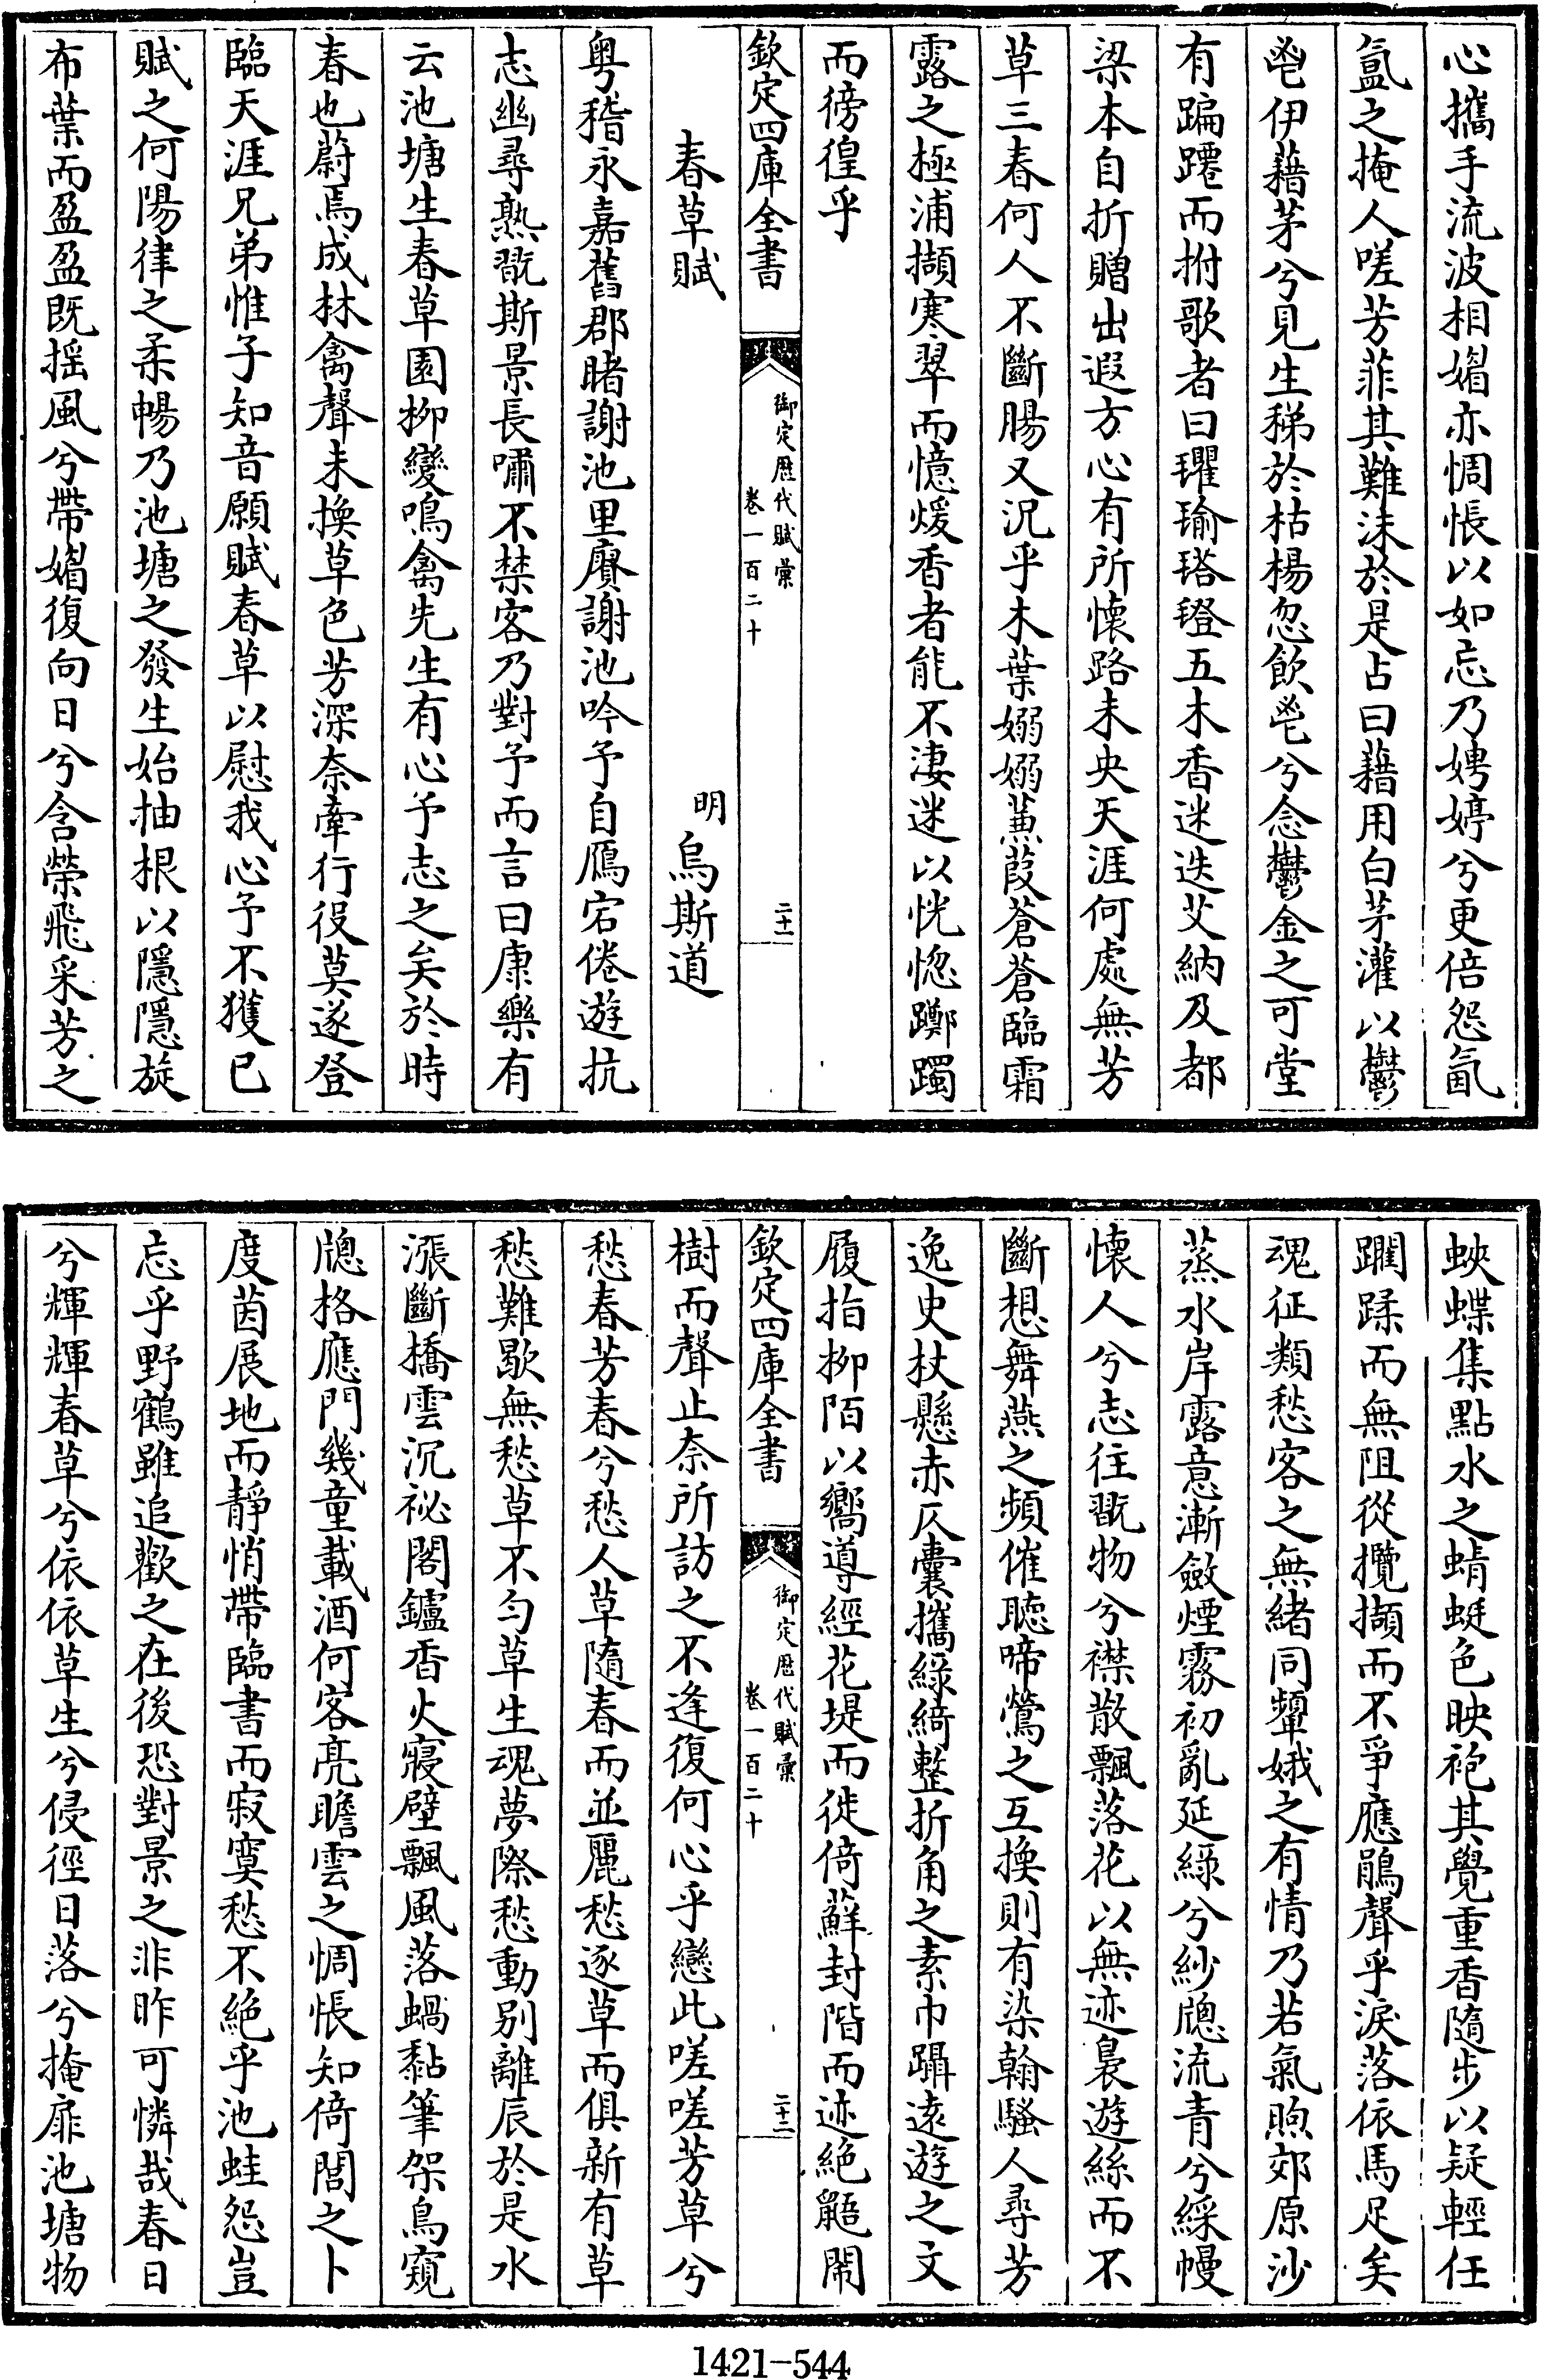 心攜手流波相媚亦惆悵以如忘乃娉婷兮更倍怨氤
氳之掩人嗟芳菲其難沬於是占曰藉用白茅灌以鬱
鬯伊藉茅兮見生稊於枯楊忽飲鬯兮念鬱金之可堂
有蹁躚而拊歌者曰瓘瑜㻭璒五木香迷迭艾納及都
梁本自折贈出遐方心有所懷路未央天涯何處無芳
草三春何人不斷腸又況乎木葉嫋嫋蒹葭蒼蒼臨霜
露之極浦擷寒翠而憶煖香者能不淒迷以恍惚躑躅
而徬徨乎
欽定四庫全書
御定歷代賦彙
卷一百二十
二十一
春草賦
明
烏斯道
粤稽永嘉舊郡睹謝池里賡謝池吟予自鴈宕倦遊抗
志幽尋熟翫斯景長嘯不禁客乃對予而言曰康樂有
云池塘生春草園柳變鳴禽先生有心予志之矣於時
春也蔚焉成林禽聲未換草色芳深奈牽行役莫遂登
臨天涯兄弟惟子知音願賦春草以慰我心予不獲已
賦之何陽律之柔暢乃池塘之發生始抽根以隱隱旋
布葉而盈盈既搖風兮帶媚復向日兮含榮飛采芳之
蛺蝶集點水之蜻蜓色映袍其覺重香隨步以疑輕任
躙蹂而無阻從攬擷而不爭應鵑聲乎淚落依馬足矣
魂征類愁客之無緒同顰娥之有情乃若氣煦郊原沙
蒸水岸露意漸斂煙霧初亂延綠兮紗牕流青兮綵幔
懷人兮志往翫物兮襟散飄落花以無迹裊遊絲而不
斷想舞燕之頻催聽啼鶯之互換則有染翰騷人尋芳
逸史杖懸赤仄囊攜綠綺整折角之素巾躡遠遊之文
履指柳陌以嚮導經花堤而徙倚蘚封階而迹絶鼯鬧
欽定四庫全書
御定歷代賦彙
卷一百二十
二十二
樹而聲止奈所訪之不逢復何心乎戀此嗟嗟芳草兮
愁春芳春兮愁人草隨春而並麗愁逐草而俱新有草
愁難歇無愁草不勻草生魂夢際愁動别離辰於是水
漲斷橋雲沉祕閣鑪香火寢壁飄風落蝸黏筆架鳥窺
牕格應門幾童載酒何客亮瞻雲之惆悵知倚閭之卜
度茵展地而靜悄帶臨書而寂寞愁不絶乎池蛙怨豈
忘乎野鶴雖追歡之在後恐對景之非昨可憐哉春日
兮輝輝春草兮依依草生兮侵徑日落兮掩扉池塘物
1421-544